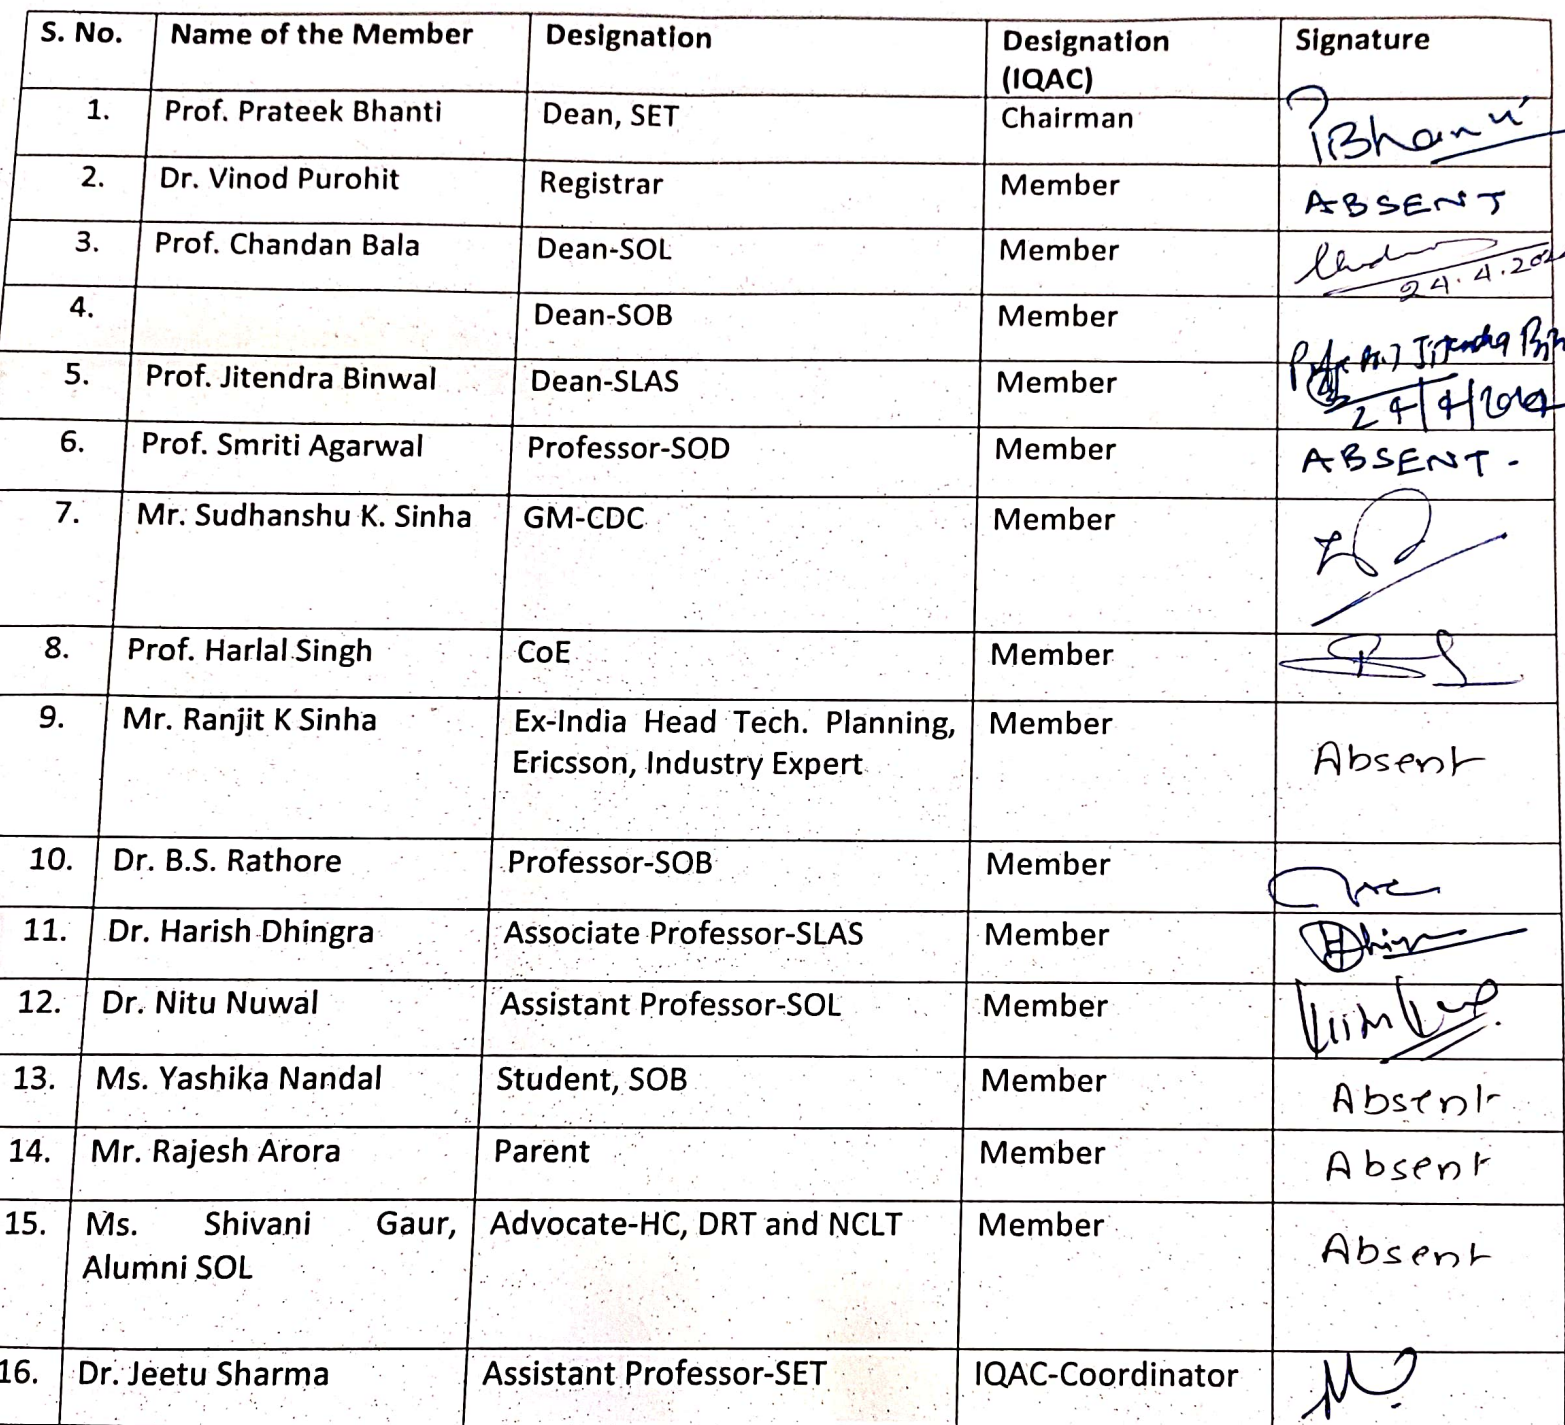 S. No. Name of the Member Designation Designation (IQAC) Signature
1. Prof. Prateek Bhanti Dean, SET Chairman PBhanti
2. Dr. Vinod Purohit Registrar Member ABSENT
3. Prof. Chandan Bala Dean-SOL Member
24.4.202
4. Dean-SOB Member
5. Prof. Jitendra Binwal Dean-SLAS Member Jitendra
24/4/2024
6. Prof. Smriti Agarwal Professor-SOD Member ABSENT-
7. Mr. Sudhanshu K. Sinha GM-CDC Member
8. Prof. Harlal Singh CoE Member
9. Mr. Ranjit K Sinha Ex-India Head Tech. Planning, Member
Ericsson, Industry Expert Absent
10. Dr. B.S. Rathore Professor-SOB Member
11. Dr. Harish Dhingra Associate Professor-SLAS Member
12. Dr. Nitu Nuwal Assistant Professor-SOL Member
13. Ms. Yashika Nandal Student, SOB Member Absent
14. Mr. Rajesh Arora Parent Member Absent
15. Ms. Shivani Gaur, Advocate-HC, DRT and NCLT Member
Alumni SOL Absent
16. Dr. Jeetu Sharma Assistant Professor-SET IQAC-Coordinator